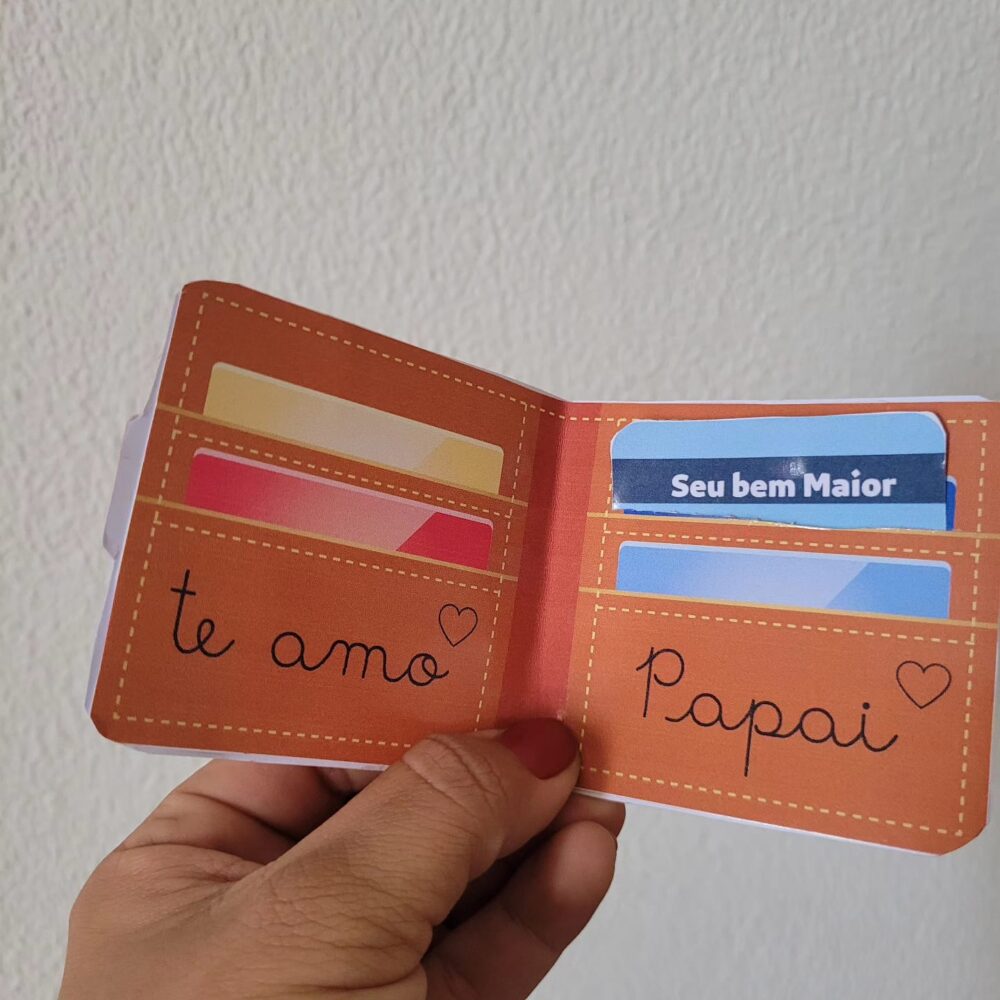 te amo
Seu bem Maior
Papai